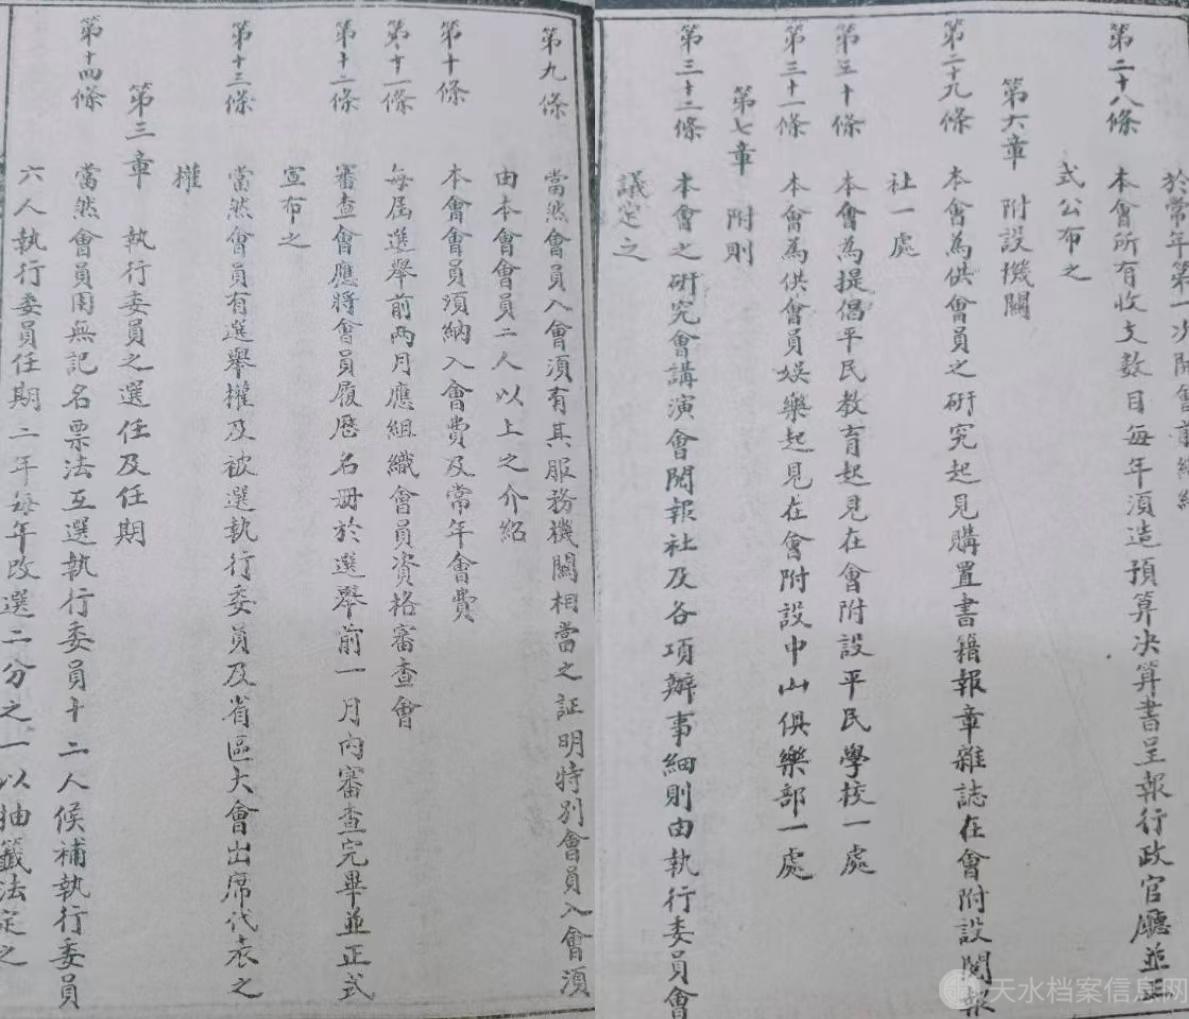 第九條　當然會員入會須有其服務機關相當之証明特別會員入會須
由本會會員二人以上之介紹
第十條　本會會員須納入會費及常年會費
第十一條　每屆選舉前兩月應組織會員資格審查會
第十二條　審查會應將會員履歷名冊於選舉前一月內審查完畢並正式
宣布之
第十三條　當然會員有選舉權及被選執行委員及省區大會出席代表之
權
第三章　執行委員之選任及任期
第十四條　當然會員用無記名票法互選執行委員十二人候補執行委員
六人執行委員任期二年每年改選二分之一以抽籤法定之
於常年第一次開會前
第二十八條　本會所有收支数目每年須造預算决算書呈報行政官廳並正
式公布之
第六章　附設機關
第二十九條　本會為供會員之研究起見購置書籍報章雜誌在會附設閱報
社一處
第三十條　本會為提倡平民教育起見在會附設平民學校一處
第三十一條　本會為供會員娛樂起見在會附設中山俱樂部一處
第七章　附則
第三十二條　本會之研究會講演會閱報社及各項辦事細則由執行委員會
議定之
天水档案信息网